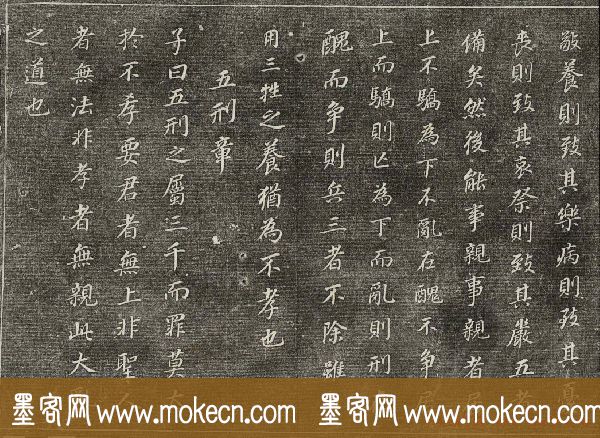 敬養則致其樂病則致其憂
喪則致其哀祭則致其嚴五者
備矣然後能事親事親者居
上不驕為下不亂在醜不争居
上而驕則亡為下而亂則刑
醜而争則兵三者不除雖
用三牲之養猶為不孝也
五刑章
子曰五刑之屬三千而罪莫大
於不孝要君者無上非聖人
者無法非孝者無親此大
之道也
墨客网 www.mokecn.com 墨客网 www.mokecn.com